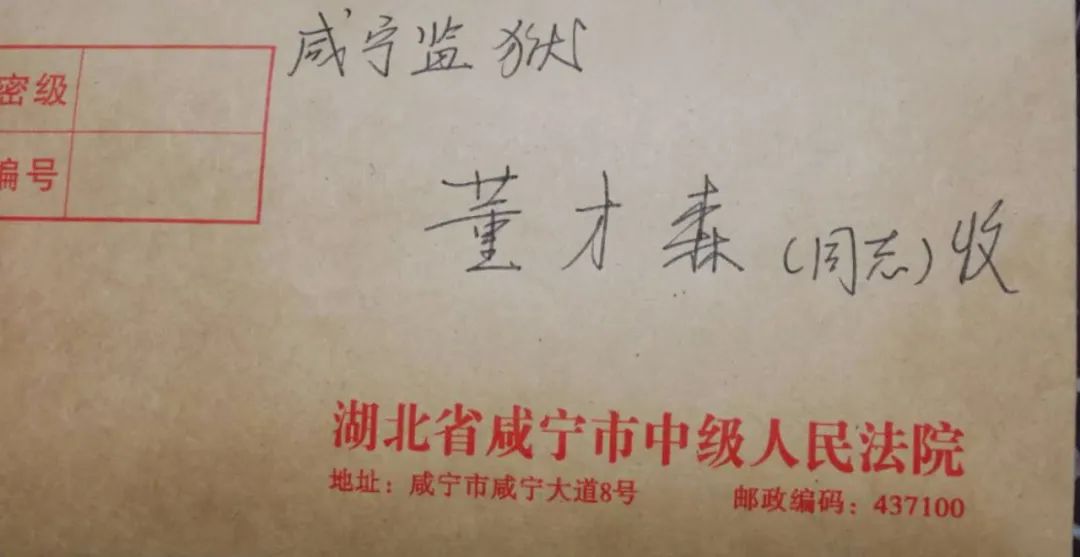 咸宁监狱
密级
编号
董才森(同志)收
湖北省咸宁市中级人民法院
地址:咸宁市咸宁大道8号 邮政编码:437100